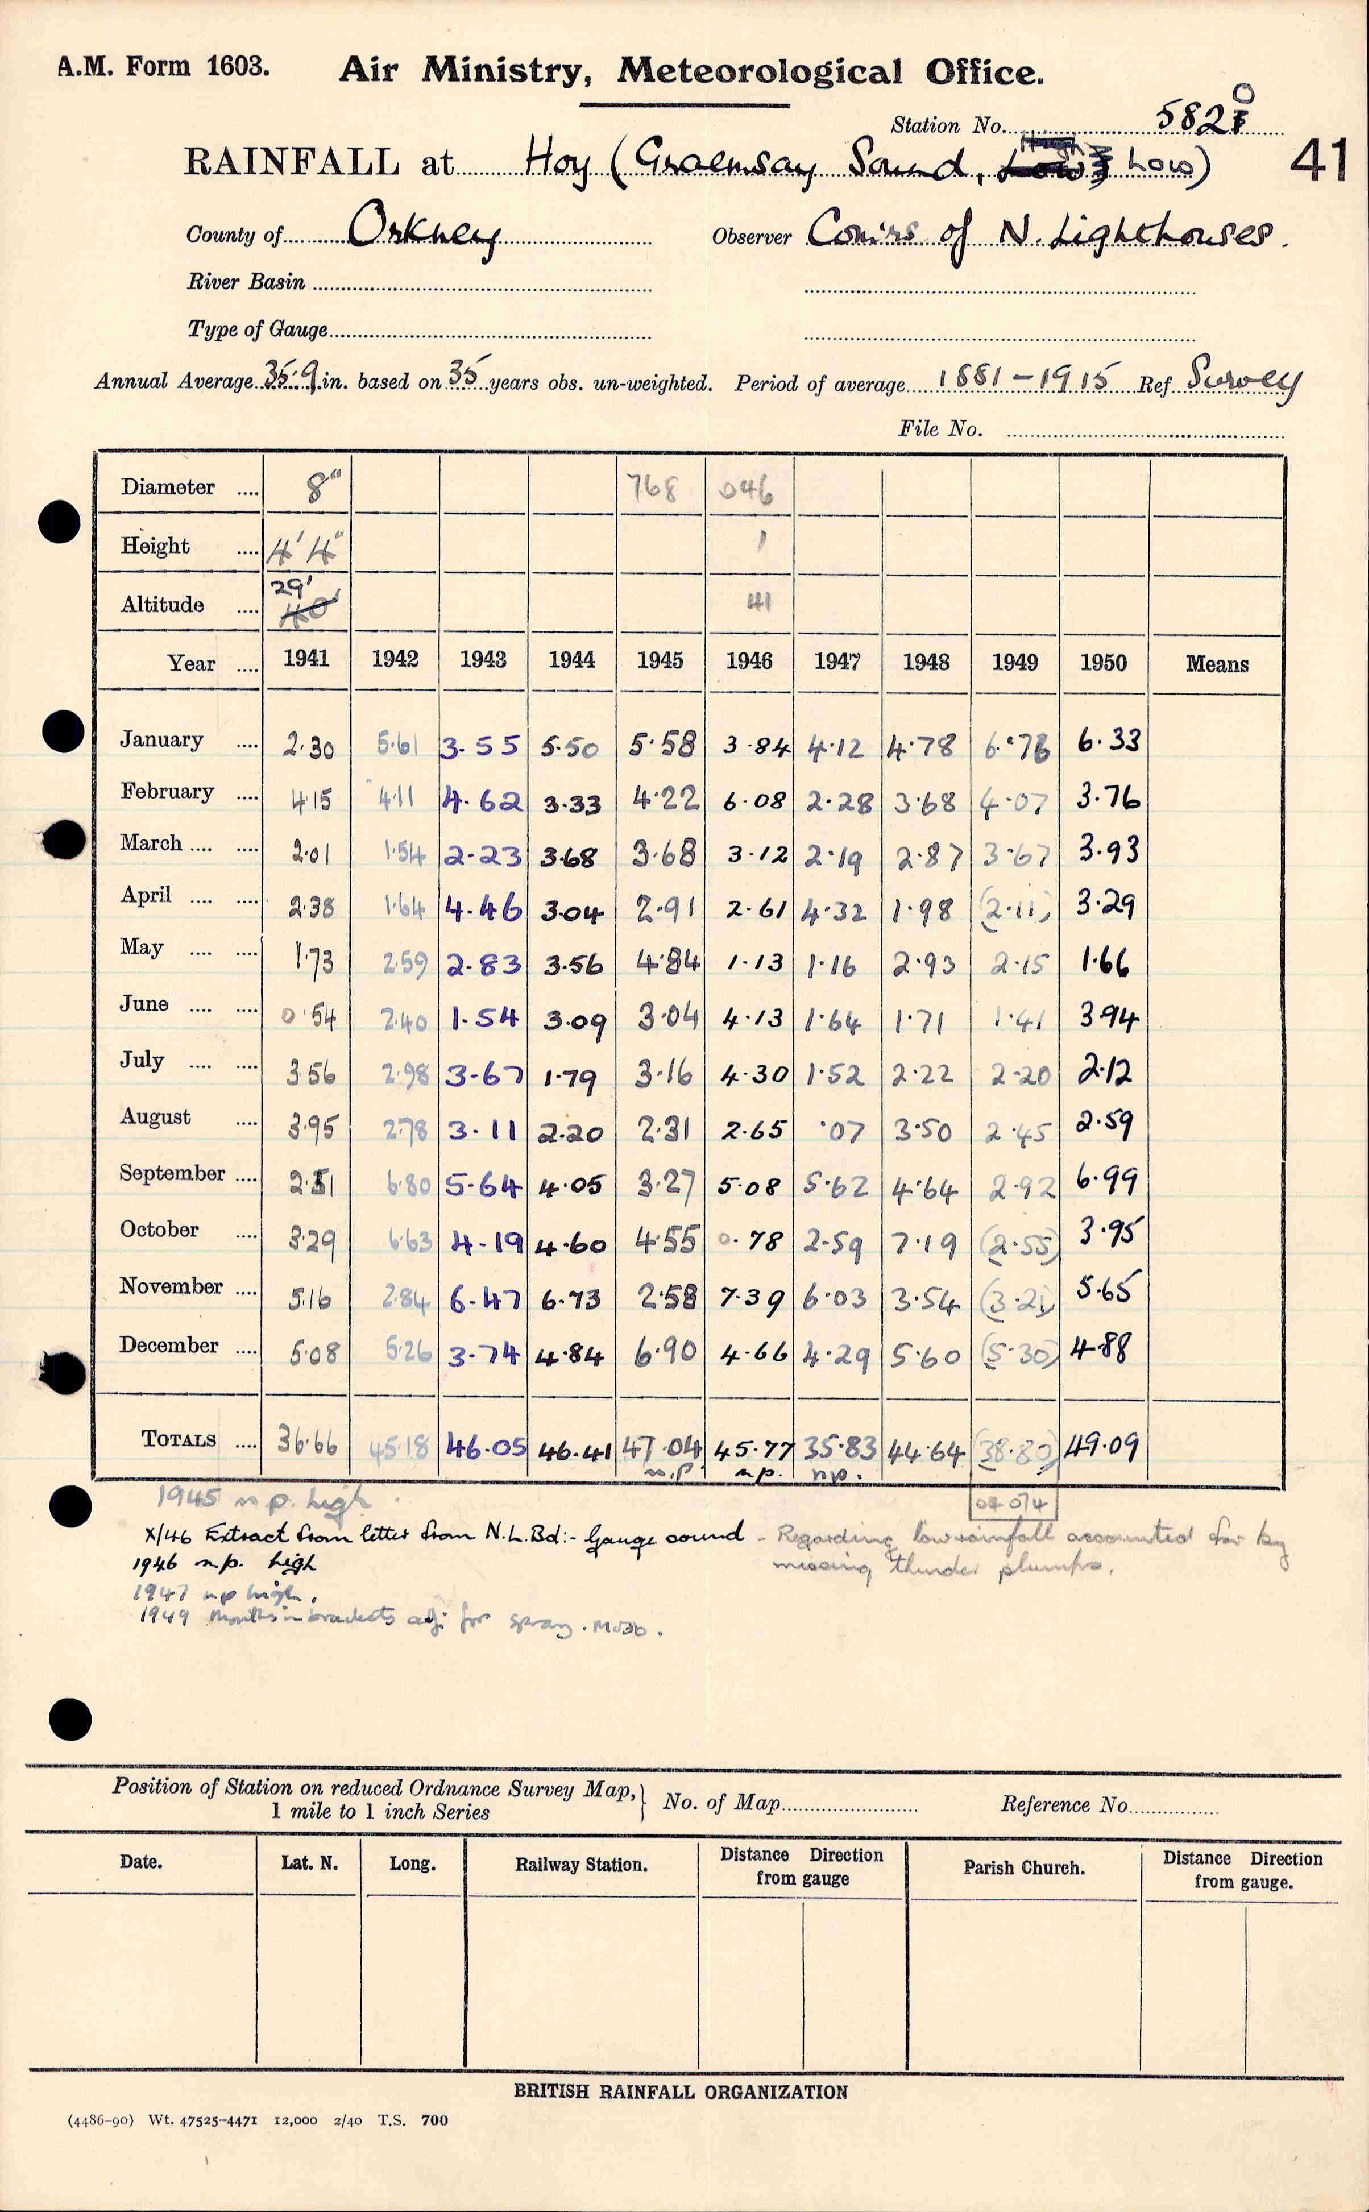 A.M. Form 1603. Air Ministry, Meteorological Office.
Station No. 5820
RAINFALL at Hoy (Graemsay Sound, Low) 41
County of Orkney Observer Comrs of N. Lighthouses.
River Basin
Type of Gauge
Annual Average 35.9 in. based on 35 years obs. un-weighted. Period of average 1881-1915 Ref. Survey
File No.
Diameter 8" 768 046
Height 4' 4" 1
Altitude 29' 40' 41
Year 1941 1942 1943 1944 1945 1946 1947 1948 1949 1950 Means
January 2.30 5.61 3.55 5.50 5.58 3.84 4.12 4.78 6.76 6.33
February 4.15 4.11 4.62 3.33 4.22 6.08 2.28 3.68 4.07 3.76
March 2.01 1.54 2.23 3.68 3.68 3.12 2.19 2.87 3.67 3.93
April 2.38 1.64 4.46 3.04 2.91 2.61 4.32 1.98 (2.11) 3.29
May 1.73 2.59 2.83 3.56 4.84 1.13 1.16 2.93 2.15 1.66
June 0.54 2.40 1.54 3.09 3.04 4.13 1.64 1.71 1.41 3.94
July 3.56 2.98 3.67 1.79 3.16 4.30 1.52 2.22 2.20 2.12
August 3.95 2.78 3.11 2.20 2.31 2.65 .07 3.50 2.45 2.59
September 2.51 6.80 5.64 4.05 3.27 5.08 5.62 4.64 2.92 6.99
October 3.29 6.63 4.19 4.60 4.55 0.78 2.59 7.19 (2.55) 3.95
November 5.16 2.84 6.47 6.73 2.58 7.39 6.03 3.54 (3.21) 5.65
December 5.08 5.26 3.74 4.84 6.90 4.66 4.29 5.60 (5.30) 4.88
TOTALS 36.66 45.18 46.05 46.41 47.04 45.77 35.83 44.64 (38.80) 49.09
n.p. n.p. n.p.
1945 n.p. high.
X/46 Extract from letter from N.L.Bd:- Gauge sound - Regarding low rainfall accounted for by
missing thunder plumps.
1946 n.p. high
1947 n.p. high.
1949 Months in brackets adj. for spray.
Position of Station on reduced Ordnance Survey Map, } No. of Map Reference No.
1 mile to 1 inch Series
Date. Lat. N. Long. Railway Station. Distance Direction from gauge Parish Church. Distance Direction from gauge.
BRITISH RAINFALL ORGANIZATION
(4486-90) Wt. 47525-4471 12,000 2/40 T.S. 700